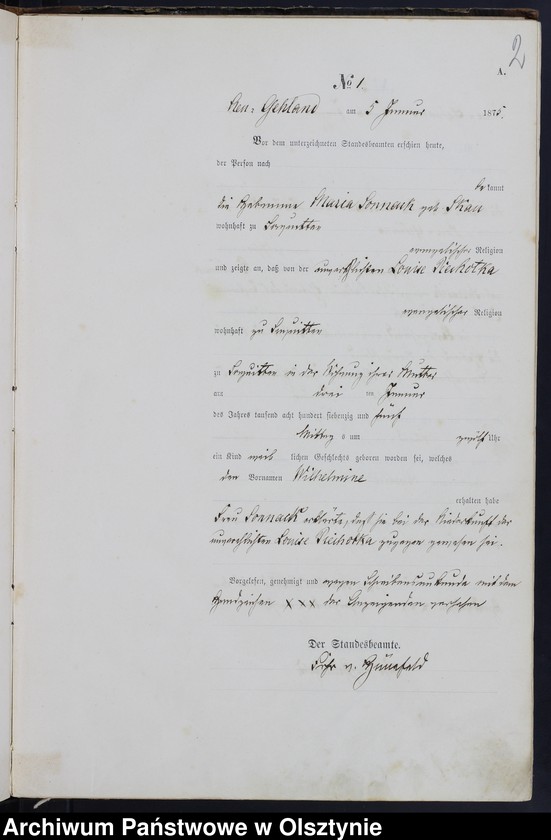 2
A.
No 1
Neu-Gehland am 5 Januar 1875.
Vor dem unterzeichneten Standesbeamten erschien heute,
der Person nach
bekannt
die Hebamme Maria Sonnack geb. Skau
wohnhaft zu Sorquitten
evangelischer Religion
und zeigte an, daß von der unverehlichten Louise Piechotka
evangelischer Religion
wohnhaft zu Sorquitten
zu Sorquitten in der Wohnung ihrer Mutter
am drei ten Januar
des Jahres tausend acht hundert siebenzig und fünf
Mittag s um zwölf Uhr
ein Kind weib lichen Geschlechts geboren worden sei, welches
den Vornamen Wilhelmine
erhalten habe
Frau Sonnack erklärte, daß sie bei der Niederkunft der
unverehlichten Louise Piechotka zugegen gewesen sei.
Vorgelesen, genehmigt und wegen Schreibensunkunde mit dem
Handzeichen XXX der Anzeigenden versehen
Der Standesbeamte.
Frhr v. Hünefeld
Archiwum Państwowe w Olsztynie